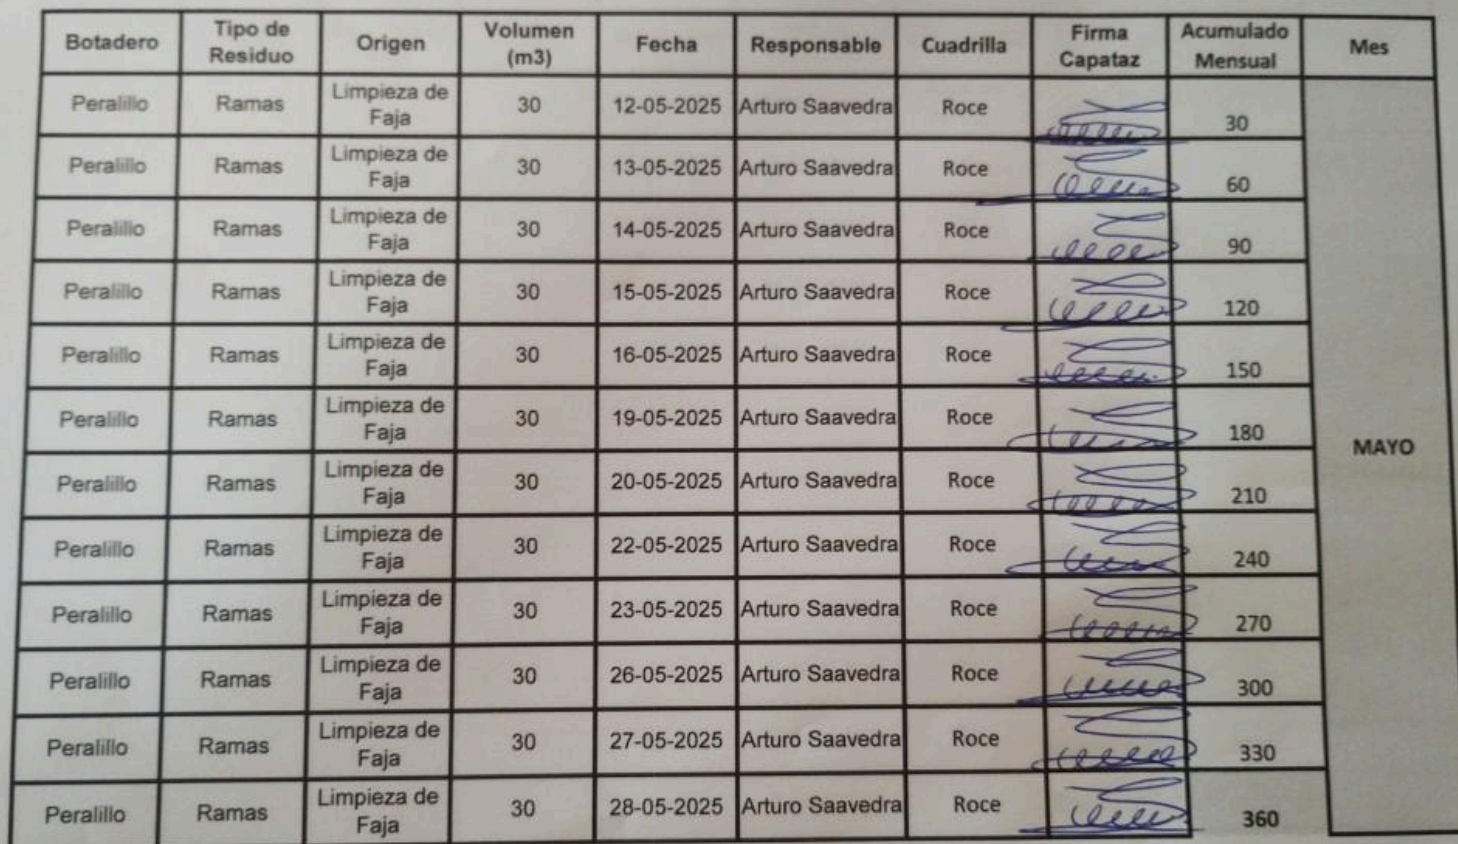 Botadero Tipo de Residuo Origen Volumen (m3) Fecha Responsable Cuadrilla Firma Capataz Acumulado Mensual Mes
Peralillo Ramas Limpieza de Faja 30 12-05-2025 Arturo Saavedra Roce 30
Peralillo Ramas Limpieza de Faja 30 13-05-2025 Arturo Saavedra Roce 60
Peralillo Ramas Limpieza de Faja 30 14-05-2025 Arturo Saavedra Roce 90
Peralillo Ramas Limpieza de Faja 30 15-05-2025 Arturo Saavedra Roce 120
Peralillo Ramas Limpieza de Faja 30 16-05-2025 Arturo Saavedra Roce 150
Peralillo Ramas Limpieza de Faja 30 19-05-2025 Arturo Saavedra Roce 180
MAYO
Peralillo Ramas Limpieza de Faja 30 20-05-2025 Arturo Saavedra Roce 210
Peralillo Ramas Limpieza de Faja 30 22-05-2025 Arturo Saavedra Roce 240
Peralillo Ramas Limpieza de Faja 30 23-05-2025 Arturo Saavedra Roce 270
Peralillo Ramas Limpieza de Faja 30 26-05-2025 Arturo Saavedra Roce 300
Peralillo Ramas Limpieza de Faja 30 27-05-2025 Arturo Saavedra Roce 330
Peralillo Ramas Limpieza de Faja 30 28-05-2025 Arturo Saavedra Roce 360